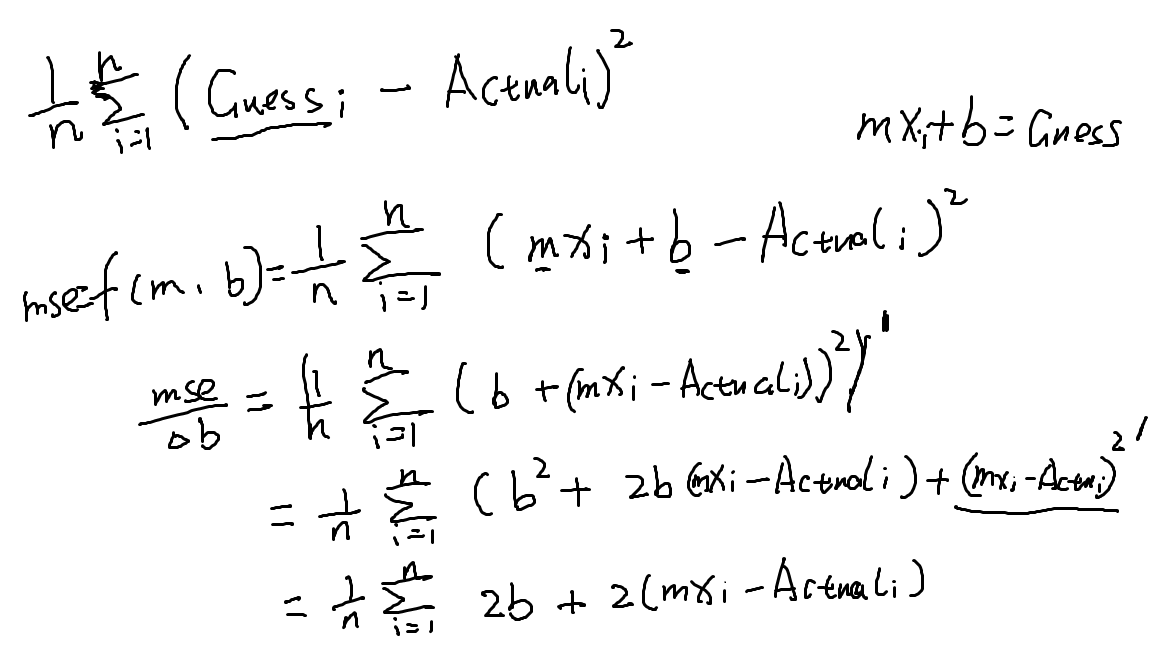 1/n Σ_{i=1}^{n} (Guess_i − Actual_i)²
mx_i + b = Guess
mse = f(m, b) = 1/n Σ_{i=1}^{n} (mx_i + b − Actual_i)²
mse/△b = (1/n Σ_{i=1}^{n} (b + (mx_i − Actual_i))²)'
= 1/n Σ_{i=1}^{n} (b² + 2b(mx_i − Actual_i) + (mx_i − Actu_i)²'
= 1/n Σ_{i=1}^{n} 2b + 2(mx_i − Actual_i)